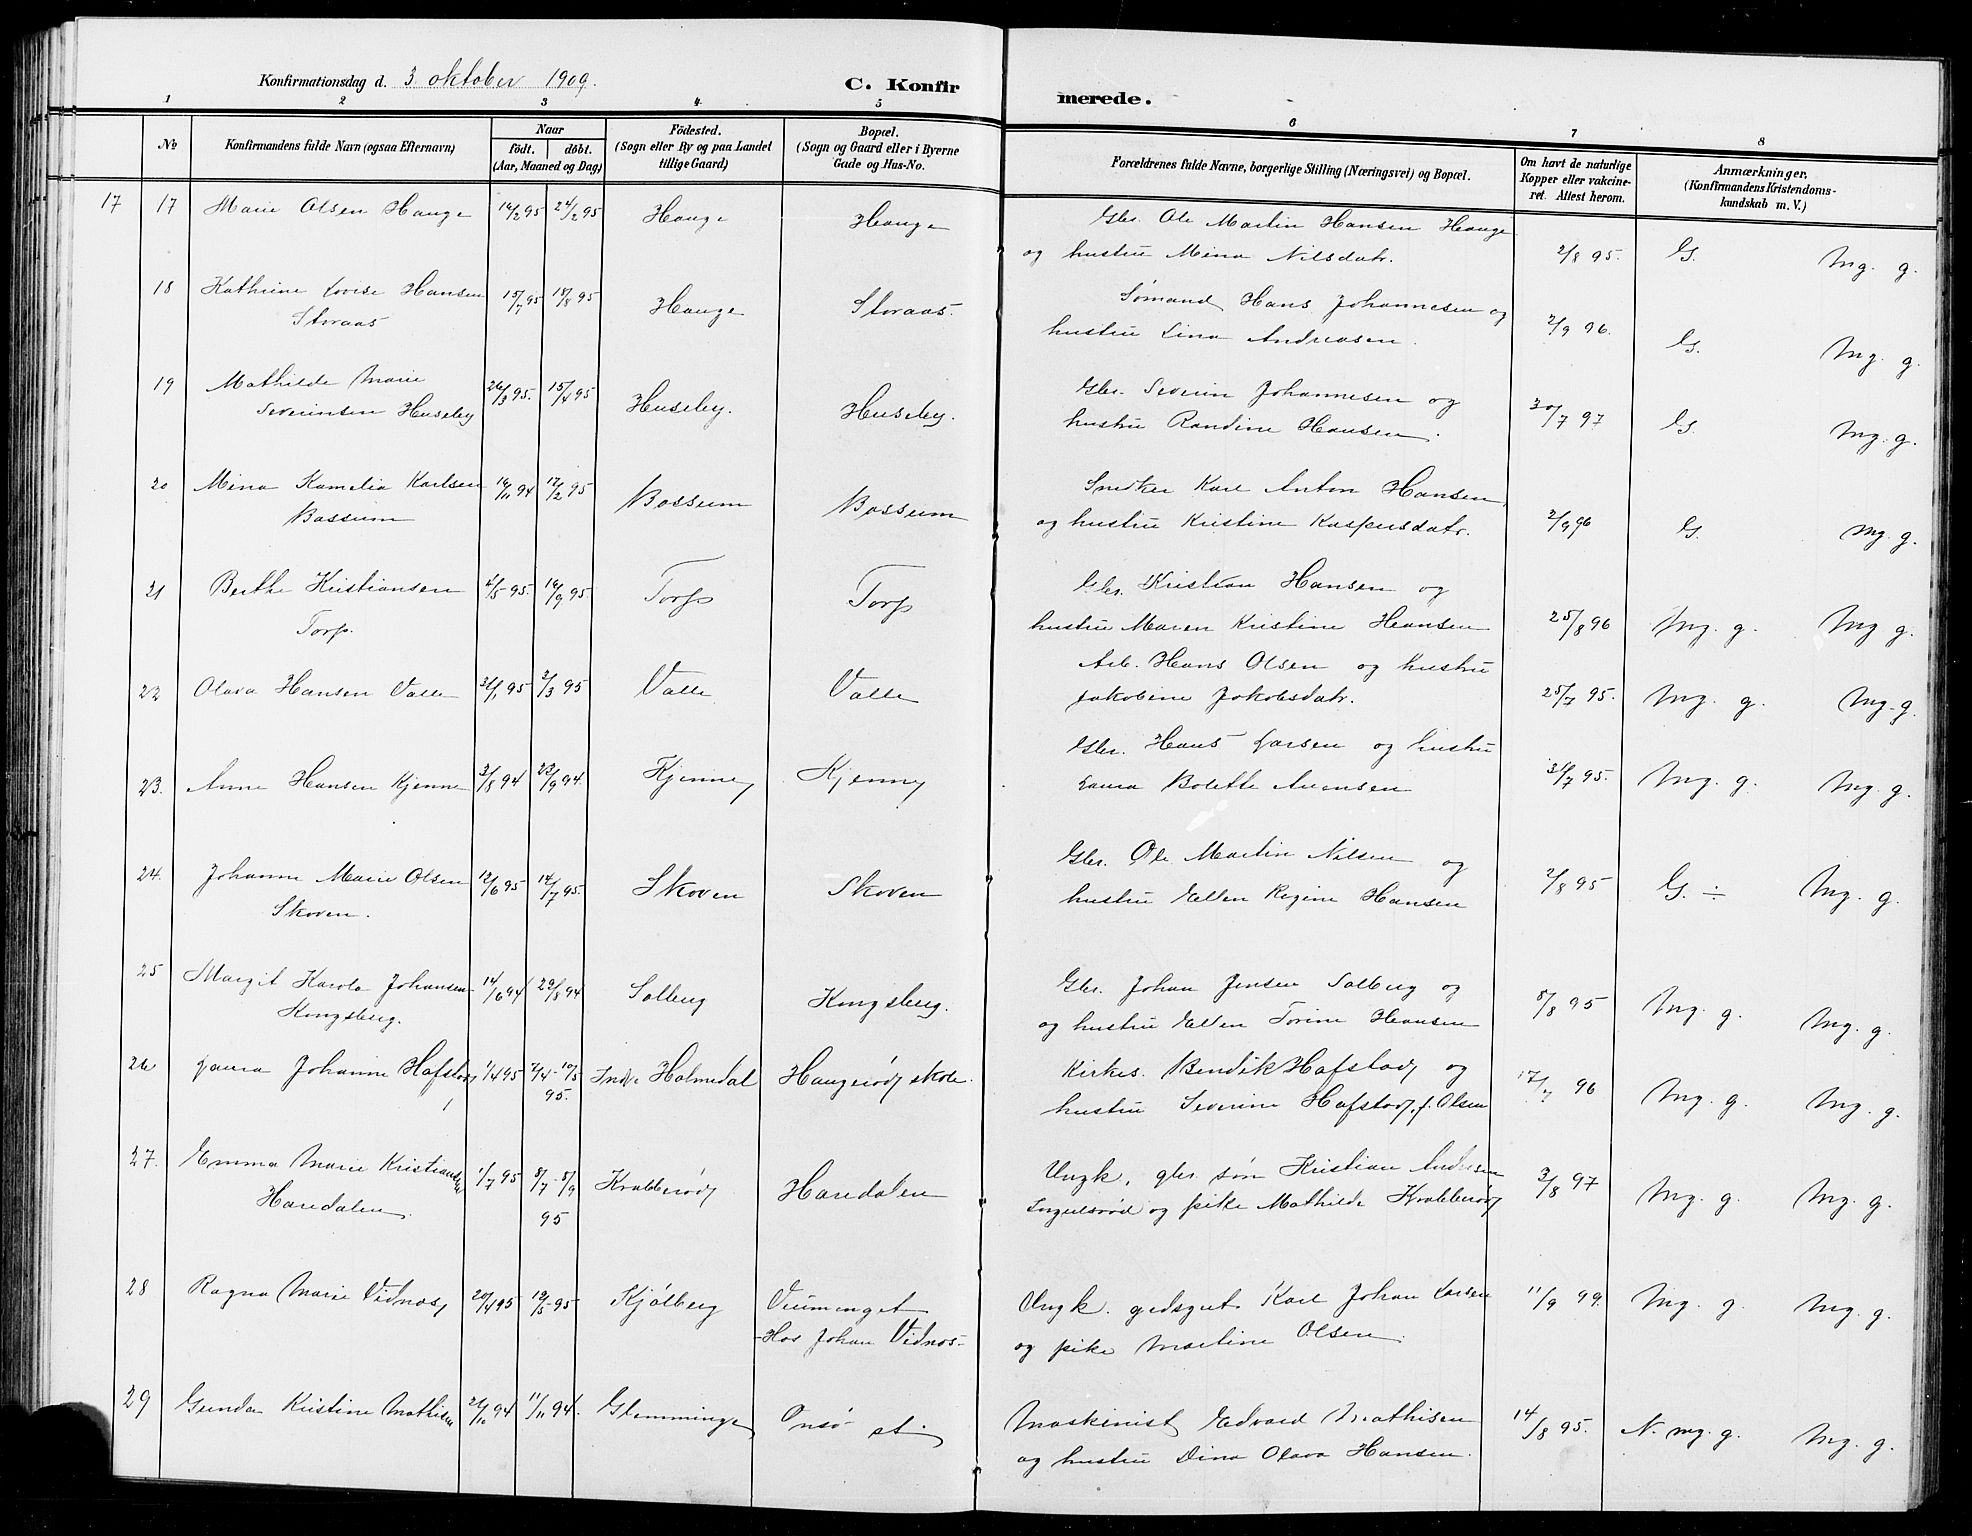 Konfirmationsdag d. 3 oktober 1909.
C. Konfirmerede.
1 2 3 4 5 6 7 8
No
Konfirmandens fulde Navn (ogsaa Efternavn)
Naar
födt. döbt.
(Aar, Maaned og Dag)
Födested.
(Sogn eller By og paa Landet
tillige Gaard)
Bopæl.
(Sogn og Gaard eller i Byerne
Gade og Hus-No.
Forældrenes fulde Navne, borgerlige Stilling (Næringsvei) og Bopæl.
Om havt de naturlige
Kopper eller vakcine-
ret. Attest herom.
Anmærkninger,
(Konfirmandens Kristendoms-
kundskab m. V.)
17 17 Marie Olsen Hauge 14/2 95 24/2 95 Hauge Hauge Gbr. Ole Martin Hansen Hauge
og hustru Mina Nilsdatr. 2/8 95. G. Mg. g.
18 Kathrine Lovise Hansen 15/7 95 18/8 95 Hauge Storaas. Sømand Hans Johannesen og
Storaas hustru Lina Andreasen. 2/9 96. G. Mg. g.
19 Mathilde Marie 26/3 95. 15/4 95 Huseby. Huseby. Gbr. Severin Johannesen og
Severinsen Huseby hustru Randine Hansen. 30/7 97 G. Mg. g.
20 Mina Kamelia Karlsen 14/11 94 17/2 95 Bossum Bossum Snedker Karl Anton Hansen
Bossum og hustru Kristine Kaspersdatr. 2/9 96 G. Mg. g.
21 Berthe Kristiansen 2/5 95. 14/9 95 Torp Torp Gbr. Kristian Hansen og
Torp. hustru Maren Kristine Hansen 25/8 96 Mg. g. Mg. g.
22 Olava Hansen Valle 24/1 95 3/3 95 Valle Valle Arb. Hans Olsen og hustru
Jakobine Jakobsdatr. 25/7 95. Mg. g. Mg. g.
23. Anne Hansen Kjenne 3/8 94 23/9 94. Kjenne Kjenne Gbr. Hans Larsen og hustru
Laura Bolette Avensen 31/7 95. Mg. g. Mg. g.
24. Johanne Marie Olsen 12/6 95 14/7 95. Skoven Skoven Gbr. Ole Martin Nilsen og
Skoven. hustru Ellen Regine Hansen 2/8 95 G. ÷ Mg. g.
25 Margit Karola Johansen 14/6 94 29/8 94 Solberg Kongsberg. Gbr. Johan Jensen Solberg og
Kongsberg. og hustru Ellen Torine Hansen 8/8 95 Mg. g. Mg. g.
26 Laura Johanne Hafstad 1/4 95 7/4 - 10/5 95. Indre Holmedal Haugerød skole. Kirkes. Bendik Hafstad og
hustru Severine Hafstad, f. Olsen 17/7 96 Mg. g. Mg. g.
27. Emma Marie Kristiansen 1/7 95 8/7 - 8/9 95 Krabberød Haredalen Ungk. gbr. søn Kristian Andersen
Haredalen. Ingulsrød og pike Mathilde Krabberød 3/8 97 Mg. g. Mg. g.
28 Ragna Marie Vidnes, 20/4 95 19/5 - 95 Kjølberg Viumenget Ungk. gdsgut. Karl Johan Larsen
-Hos Johan Vidnes- og pike Martine Olsen. 11/9 99. Mg. g. Mg. g.
29 Gunda Kristine Mathisen 21/10 94 11/11 94. Glemminge Onsø st. Maskinist Edvard Mathisen
og hustru Dina Olava Hansen. 14/8 95. N. mg. g. Mg. g.